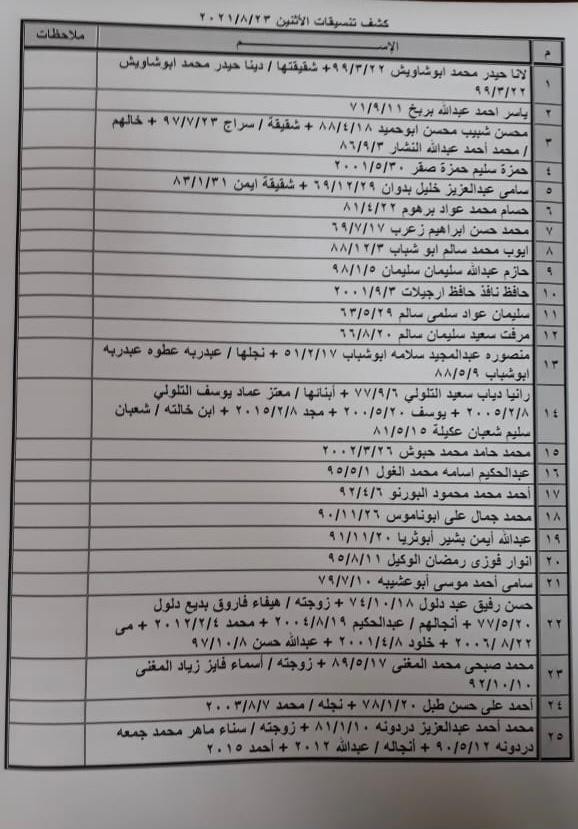 كشف تنسيقات الأثنين ٢٠٢١/٨/٢٣
م الإســـــم ملاحظات
١ لانا حيدر محمد ابوشاويش ٩٩/٣/٢٢+ شقيقتها / دينا حيدر محمد ابوشاويش
٩٩/٣/٢٢
٢ ياسر احمد عبدالله بريخ ٧١/٩/١١
٣ محسن شبيب محسن ابوحميد ٨٨/٤/١٨ + شقيقة / سراج ٩٧/٧/٢٣ + خالهم
/ محمد أحمد عبدالله النشار ٨٦/٩/٣
٤ حمزة سليم حمزة صقر ٢٠٠١/٥/٣٠
٥ سامى عبدالعزيز خليل بدوان ٦٩/١٢/٢٩ + شقيقة ايمن ٨٣/١/٣١
٦ حسام محمد عواد برهوم ٨١/٤/٢٢
٧ محمد حسن ابراهيم زعرب ٦٩/٧/١٧
٨ ايوب محمد سالم ابو شباب ٨٨/١٢/٣
٩ حازم عبدالله سليمان سليمان ٩٨/١/٥
١٠ حافظ نافذ حافظ ارجيلات ٢٠٠١/٩/٣
١١ سليمان عواد سلمى سالم ٦٣/٥/٢٩
١٢ مرفت سعيد سليمان سالم ٦٦/٨/٢٠
١٣ منصوره عبدالمجيد سلامه ابوشباب ٥١/٢/١٧ + نجلها / عبدربه عطوه عبدربه
ابوشباب ٨٨/٥/٩
١٤ رانيا دياب سعيد التلولي ٧٧/٩/٦ + أبنائها / معتز عماد يوسف التلولي
٢٠٠٥/٢/٨ + يوسف ٢٠٠/٥/٢٠ + مجد ٢٠١٥/٢/٨ + ابن خالته / شعبان
سليم شعبان عكيلة ٨١/٥/١٥
١٥ محمد حامد محمد حبوش ٢٠٠٢/٣/٢٦
١٦ عبدالحكيم اسامه محمد الغول ٩٥/٥/١
١٧ أحمد محمد محمود البورنو ٩٢/٤/٦
١٨ محمد جمال على ابوناموس ٩٠/١١/٢٦
١٩ عبدالله أيمن بشير أبوثريا ٩١/١١/٢٠
٢٠ انوار فوزى رمضان الوكيل ٩٥/٨/١١
٢١ سامى أحمد موسى أبوعشيبه ٧٩/٧/١٠
٢٢ حسن رفيق عبد دلول ٧٤/١٠/١٨ + زوجته / هيفاء فاروق بديع دلول
٧٧/٥/٢٠ + أنجالهم / عبدالحكيم ٢٠٠٤/٨/١٩ + محمد ٢٠١٢/٢/٤ + مى
٢٠٠٦/ ٨/٢٢ + خلود ٢٠٠١/٤/٨ + عبدالله حسن ٩٧/١٠/٨
٢٣ محمد صبحي محمد المغنى ٨٩/٥/١٧ + زوجته / أسماء فايز زياد المغنى
٩٢/١٠/١٠
٢٤ أحمد على حسن طبل ٧٨/١/٢٠ + نجله / محمد ٢٠٠٣/٨/٧
٢٥ محمد أحمد عبدالعزيز دردونه ٨١/١/١٠ + زوجته / سناء ماهر محمد جمعه
دردونه ٩٠/٥/١٢ + أنجاله / عبدالله ٢٠١٢ + أحمد ٢٠١٥